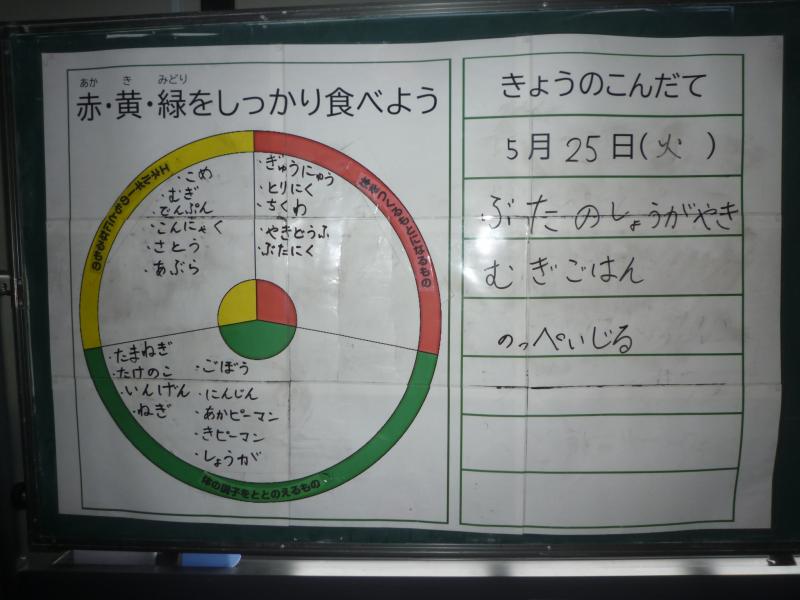 あか き みどり
赤・黄・緑をしっかり食べよう
エネルギーのもとになるもの
・こめ
・むぎ
・でんぷん
・こんにゃく
・さとう
・あぶら
体をつくるもとになるもの
・ぎゅうにゅう
・とりにく
・ちくわ
・やきとうふ
・ぶたにく
・たまねぎ
・たけのこ
・いんげん
・ねぎ
・ごぼう
・にんじん
・あかピーマン
・きピーマン
・しょうが
体の調子をととのえるもの
きょうのこんだて
5月25日(火)
ぶたのしょうがやき
むぎごはん
のっぺいじる